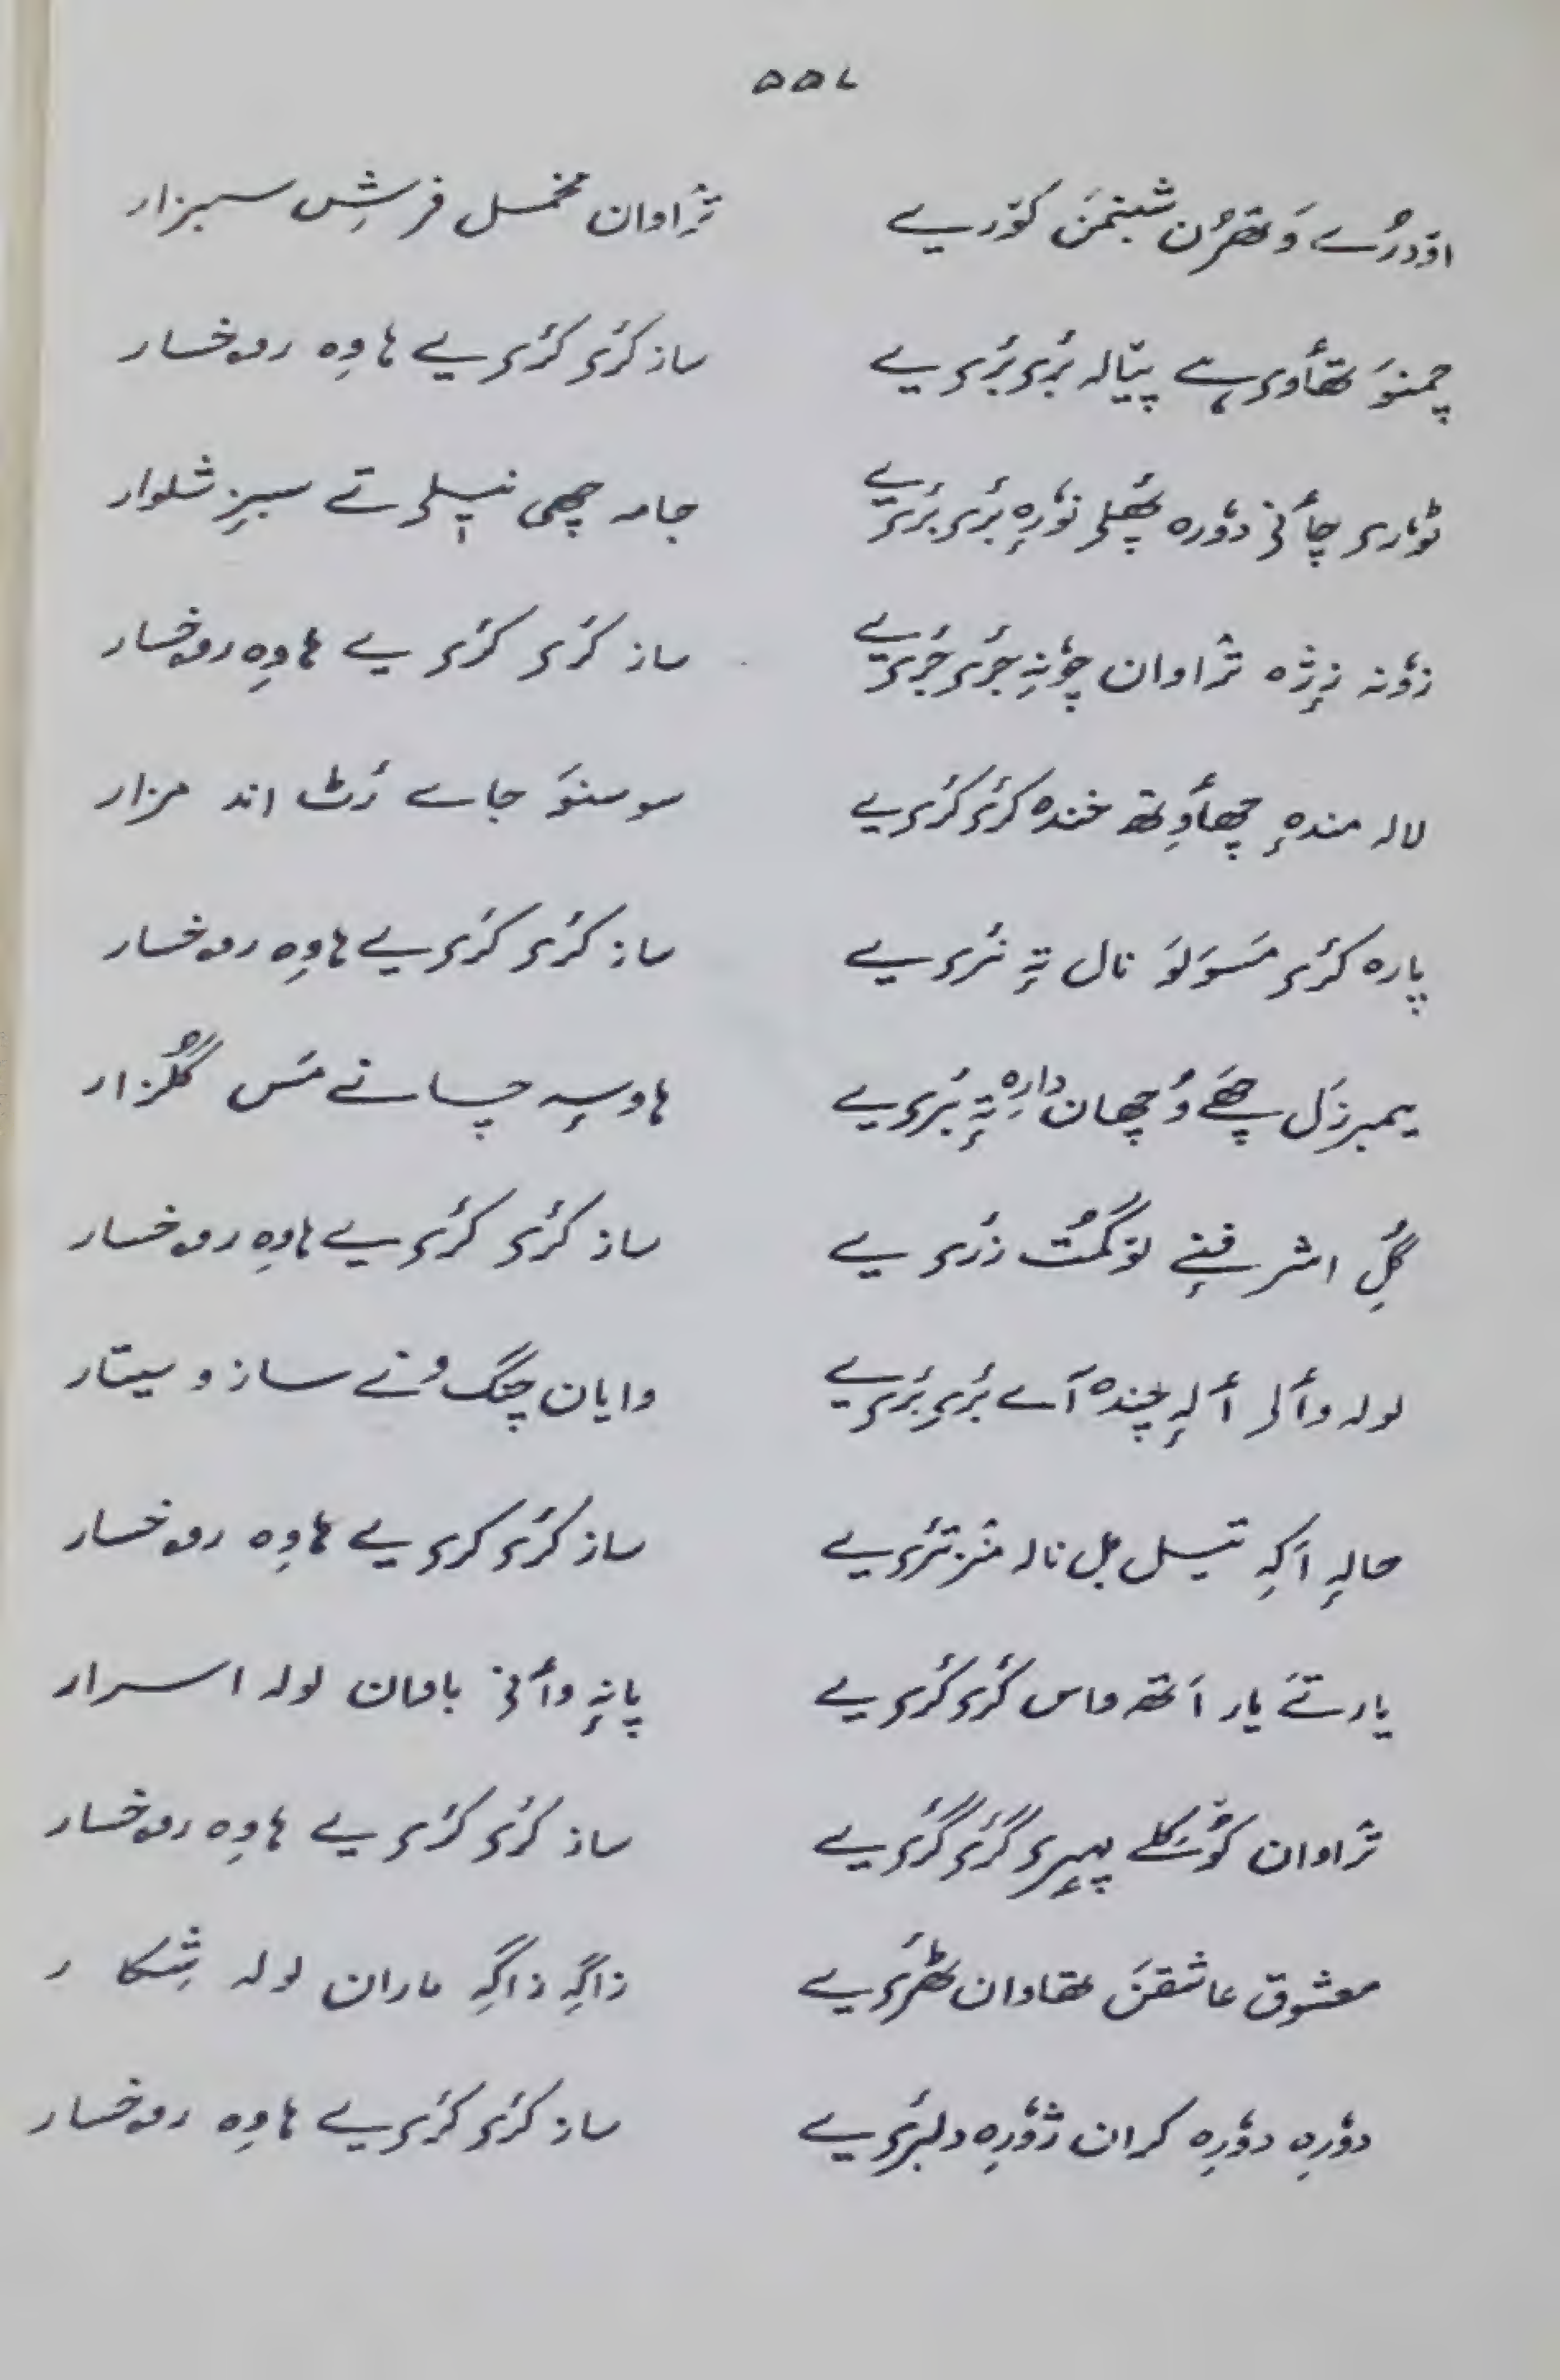 ۵۵۷
اوٚدرُے وَتھرُن شبنمَن کوٚریے ترٛاوان مخمل فرشِ سبزار
چمنوَ تھأوی ہے پیالہ بٔری بٔری یے ساز کٔری کٔری یے ہاوِہ روخسار
ٹوٗری چأنی دوٗرہ پھُلی نوٗرٕہ بٔری بٔری یے جامہ چھی نیٖلی تے سبز شلوار
زوٗنہ زٕژہ ترٛاوان چوٗنہِ جٔری جٔری یے ساز کٔری کٔری یے ہاوِہ روخسار
لالہ مندٕہ چھأوِتھ خندہ کٔری کٔری یے سوسنوَ جاے رَٹ اند مزار
پارہ کٔری مَسوَلوَ نال تہٕ نٔری یے ساز کٔری کٔری یے ہاوِہ روخسار
یمبرزَل چھَے وُچھان دارِہ تہٕ بَری یے ہاوسہِ چسانے مَس گُلزار
گُلِ اشرفنٕے لوٚگمُت زٔری یے ساز کٔری کٔری یے ہاوِہ روخسار
لولہ وألی ألہٕ چندہ آے بٔری بٔری یے وایان چنگ وُنے ساز و سیتار
حالہٕ اَکہِ تیسل بل نالہ منز تٔری یے ساز کٔری کری یے ہاوِہ روخسار
یارتَے یار اَتھہ واس کٔری کٔری یے پانہٕ وأنی باوان لولہ اسرار
ترٛاوان کوٚشکلے پھیٖری گٔری گٔری یے ساز کٔری کٔری یے ہاوِہ روخسار
معشوق عاشقَن تھاوان ٹھٔری یے زاگہِ زاگہِ ماران لولہ شِکار
دوٗرِہ دوٗرِہ کران ژوٗرِہ دلبٔری یے ساز کٔری کٔری یے ہاوِہ روخسار